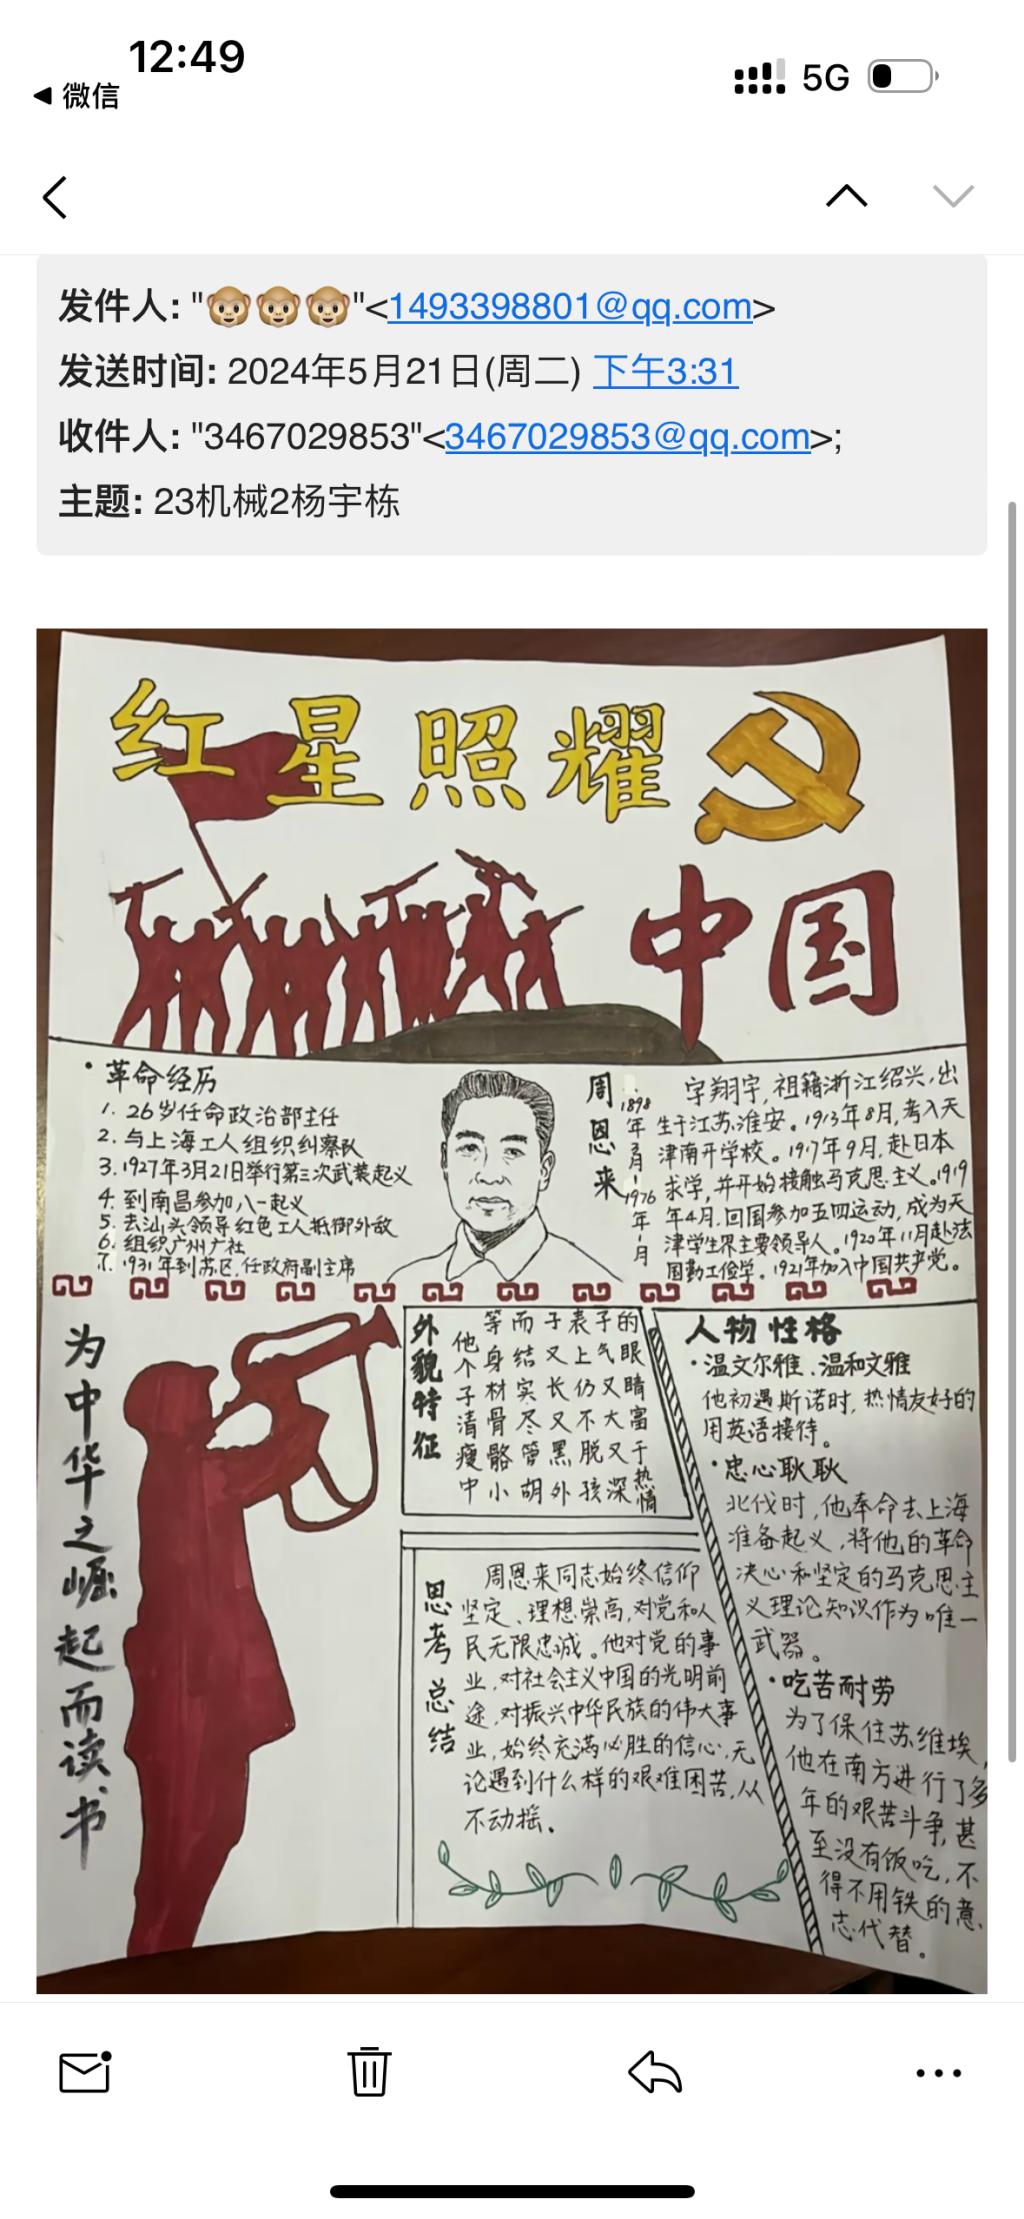 12:49
微信
5G
发件人: "🐵🐵🐵"<1493398801@qq.com>
发送时间: 2024年5月21日(周二) 下午3:31
收件人: "3467029853"<3467029853@qq.com>;
主题: 23机械2杨宇栋
红星照耀
中国
·革命经历
1. 26岁任命政治部主任
2. 与上海工人组织纠察队
3. 1927年3月21日举行第三次武装起义
4. 到南昌参加八一起义
5. 去汕头领导红色工人抵御外敌
6. 组织广州广社
7. 1931年到苏区,任政府副主席
周恩来
1898年3月-1976年1月
字翔宇,祖籍浙江绍兴,出
生于江苏淮安。1913年8月,考入天
津南开学校。1917年9月,赴日本
求学,并开始接触马克思主义。1919
年4月,回国参加五四运动,成为天
津学生界主要领导人。1920年11月赴法
国勤工俭学。1921年加入中国共产党。
为中华之崛起而读书
外貌特征
他个子清瘦中
等身材骨骼小
而结实尽管胡
子又长又黑外
表上仍不脱孩
子气又大又深
的眼睛富于热情
人物性格
·温文尔雅、温和文雅
他初遇斯诺时,热情友好的
用英语接待。
·忠心耿耿
北伐时,他奉命去上海
准备起义,将他的革命
决心和坚定的马克思主
义理论知识作为唯一
武器。
·吃苦耐劳
为了保住苏维埃,
他在南方进行了多
年的艰苦斗争,甚
至没有饭吃,不
得不用铁的意
志代替。
思考总结
周恩来同志始终信仰
坚定、理想崇高,对党和人
民无限忠诚。他对党的事
业,对社会主义中国的光明前
途,对振兴中华民族的伟大事
业,始终充满必胜的信心,无
论遇到什么样的艰难困苦,从
不动摇.